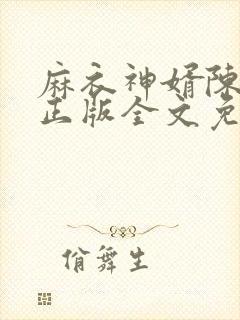 麻衣神婿陈
正版全文免
俏舞生